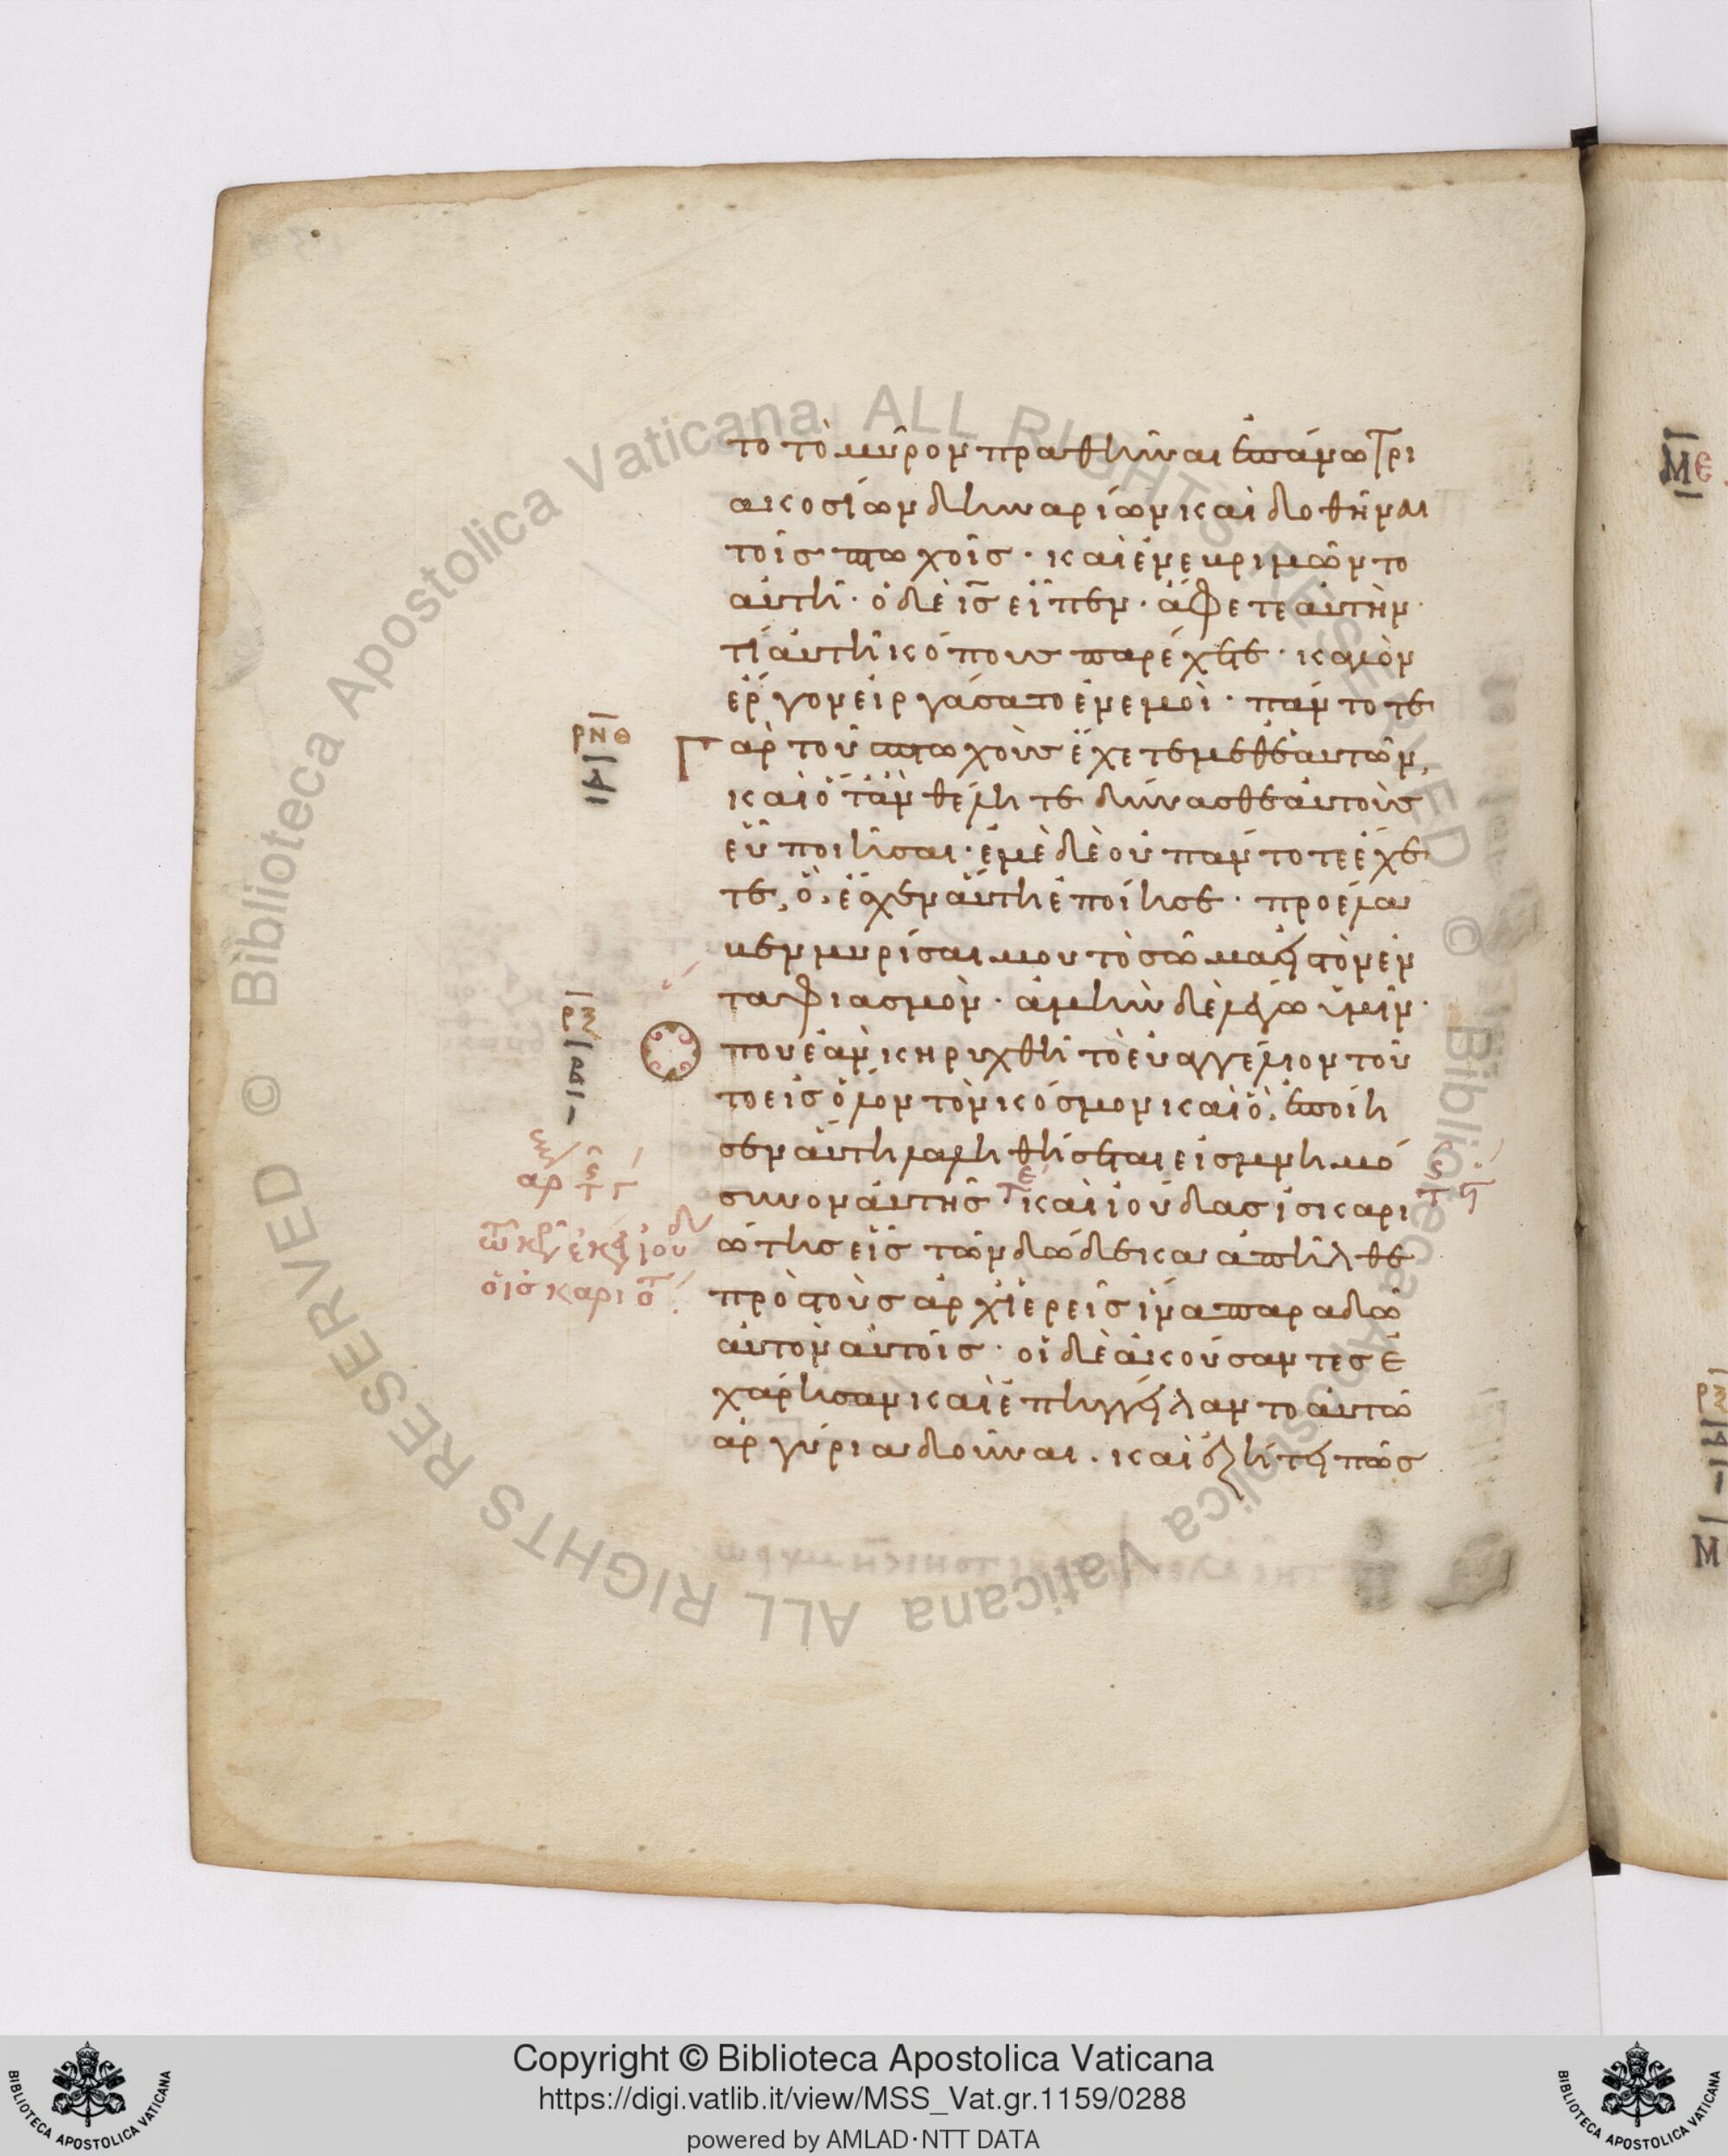 το τὸ μύρον πραθῆναι ἐπάνω τρι
ακοσίων δηναρίων καὶ δοθῆναι
τοῖς πτωχοῖς · καὶ ἐνεκριμῶντο
αὐτῆ · ὁ δὲ ἰς εἶπεν · ἄφετε αὐτὴν ·
τί αὐτῆ κόπους παρέχετε · καλὸν
ἔργον εἰργάσατο ἐν ἐμοί · πάντοτε
ρνθ
α
γὰρ τοὺ πτωχοὺς ἔχετε μεθ ἑαυτῶν,
καὶ ὅταν θέλητε δύνασθε αὐτοὺς
εὖ ποιῆσαι · ἐμὲ δὲ οὐ πάντοτε ἔχε
τε, ὃ, ἔσχεν αὕτη ἐποίησε · προέλα
βεν μυρίσαι μου τὸ σῶμα εἰς τὸν ἐν
ταφιασμὸν · ἀμὴν δὲ λέγω ὑμῖν ·
ρξ
β
ὅπου ἐὰν κηρυχθῆ τὸ εὐαγγέλιον τοῦ
το εἰς ὅλον τὸν κόσμον καὶ ὃ, ἐποίη
σεν αὕτη λαληθήσεται εἰς μνημό
συνον αὐτῆς καὶ ἰούδας ἰσκαρι
ώτης εἷς τῶν δώδεκα ἀπῆλθε
πρὸς τοὺς ἀρχιερεῖς ἵνα παραδῶ
αὐτὸν αὐτοῖς · οἱ δὲ ἀκούσαντες ἐ
χάρησαν καὶ ἐπηγγείλαντο αὐτῶ
ἀργύρια δοῦναι . καὶ ἐζήτει πῶς
Με
Copyright © Biblioteca Apostolica Vaticana
https://digi.vatlib.it/view/MSS_Vat.gr.1159/0288
powered by AMLAD·NTT DATA
BIBLIOTECA APOSTOLICA VATICANA
BIBLIOTECA APOSTOLICA VATICANA
© Biblioteca Apostolica Vaticana ALL RIGHTS RESERVED © Biblioteca Apostolica Vaticana ALL RIGHTS RESERVED